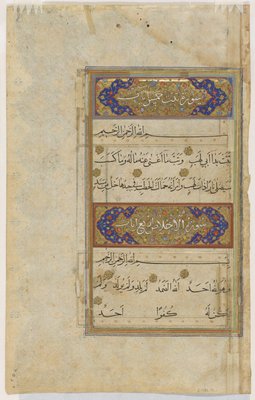 سورة تبت خمس آيات
بسم الله الرحمن الرحيم
تبت يدا أبي لهب وتب ما أغنى عنه ماله وما كسب
سيصلى نارا ذات لهب وامرأته حمالة الحطب في جيدها حبل من
سورة الإخلاص أربع آيات
بسم الله الرحمن الرحيم
قل هو الله أحد الله الصمد لم يلد ولم يولد ولم
يكن له كفوا أحد